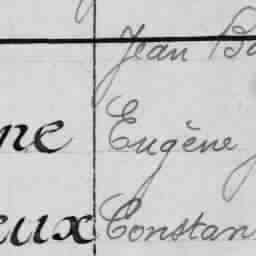 Jean Ba
ne Eugène J
eux Constan